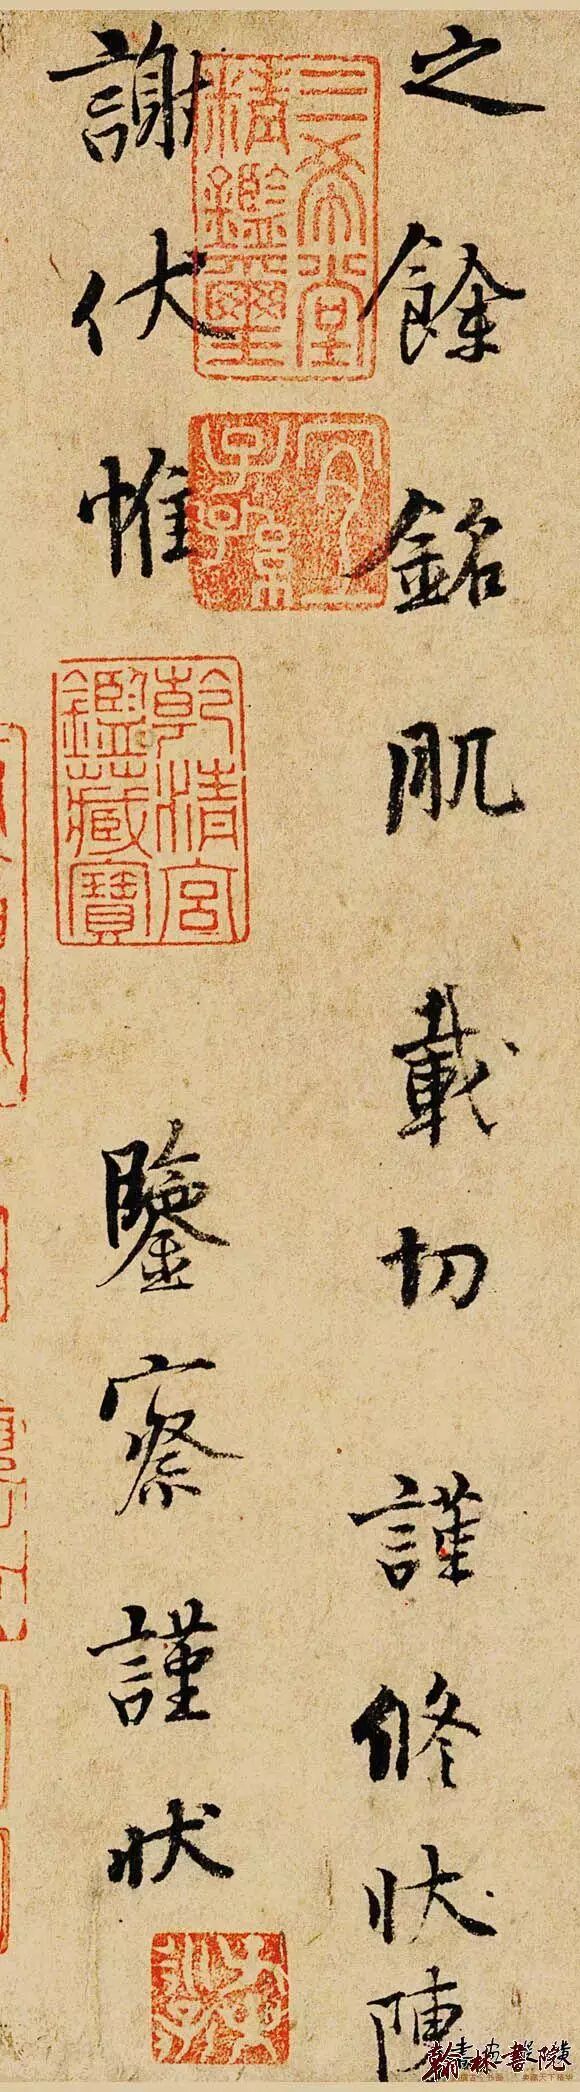 之餘銘肌載切謹修狀陳
謝伏惟鑒察謹狀
三希堂
精鑑璽
宜
子孫
乾清宮
鑑藏寶
翰林書院